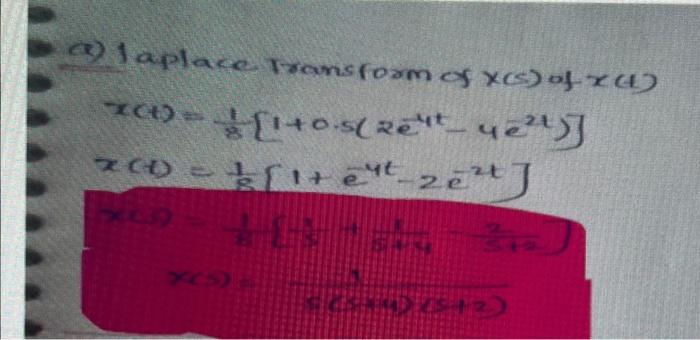 a) Laplace Transform of X(s) of x(t)
x(t) = 1/8 [1+0.5(2e^-4t - 4e^-2t)]
x(t) = 1/8 [1 + e^-4t - 2e^-2t]
x(s) = 1/8 [1/s + 1/s+4 - 2/s+2]
x(s) = 1/s(s+4)(s+2)